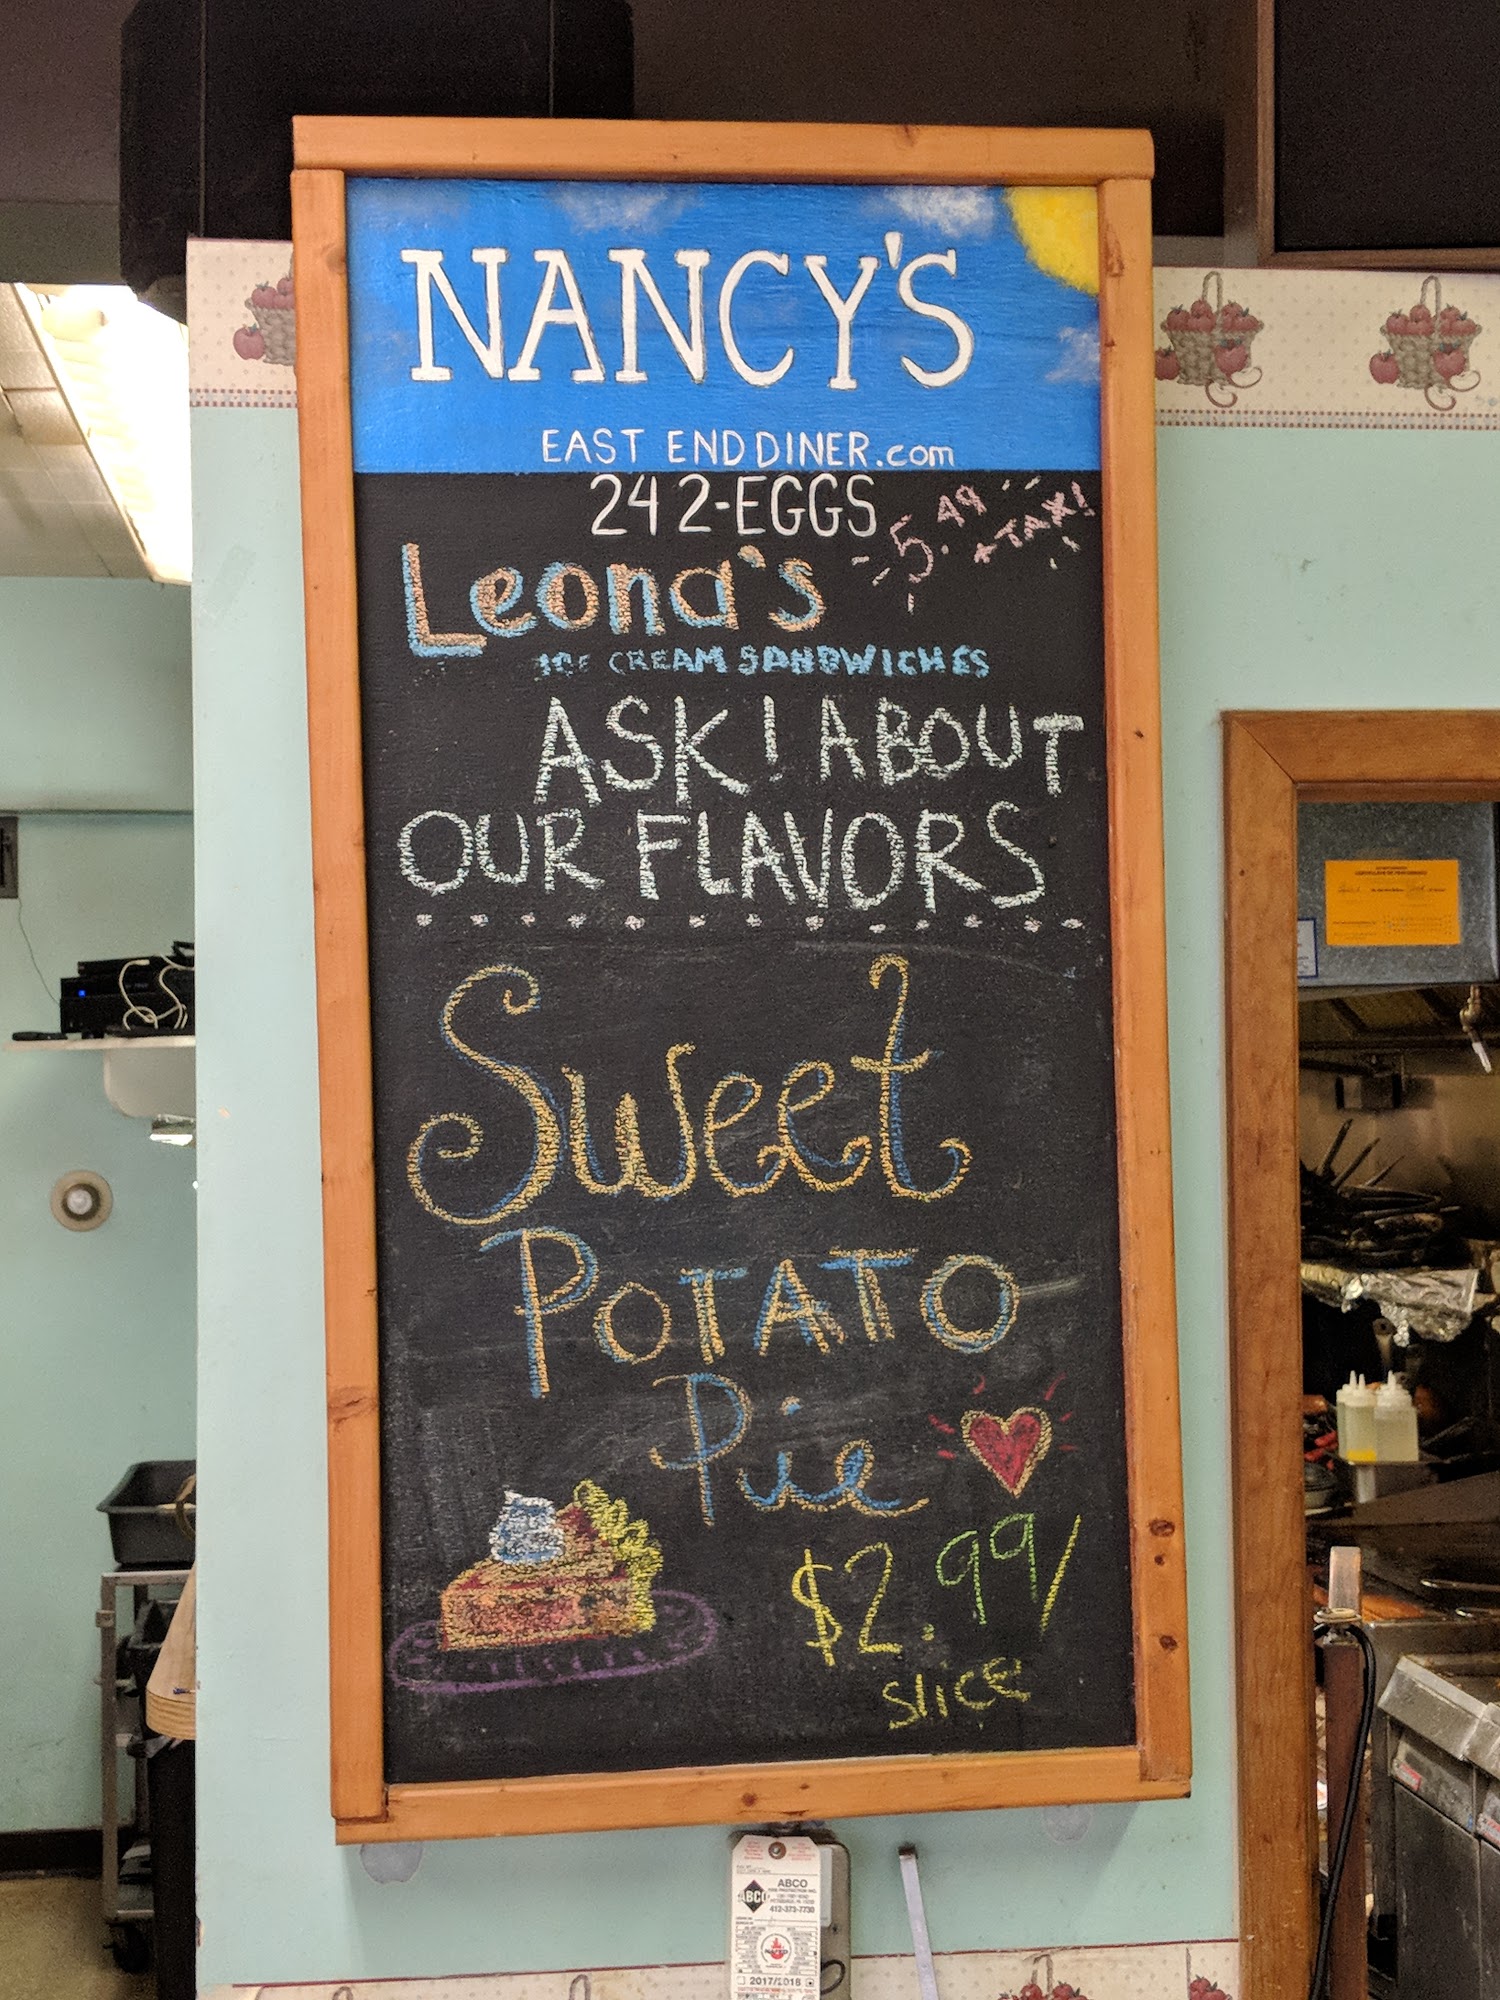 NANCY'S
EAST END DINER.com
242-EGGS
5.49
+TAX!
Leona's
ICE CREAM SANDWICHES
ASK! ABOUT
OUR FLAVORS
Sweet
POTATO
Pie
$2.99/
slice
ABCO
ABCO
412-373-7730
2017/2018